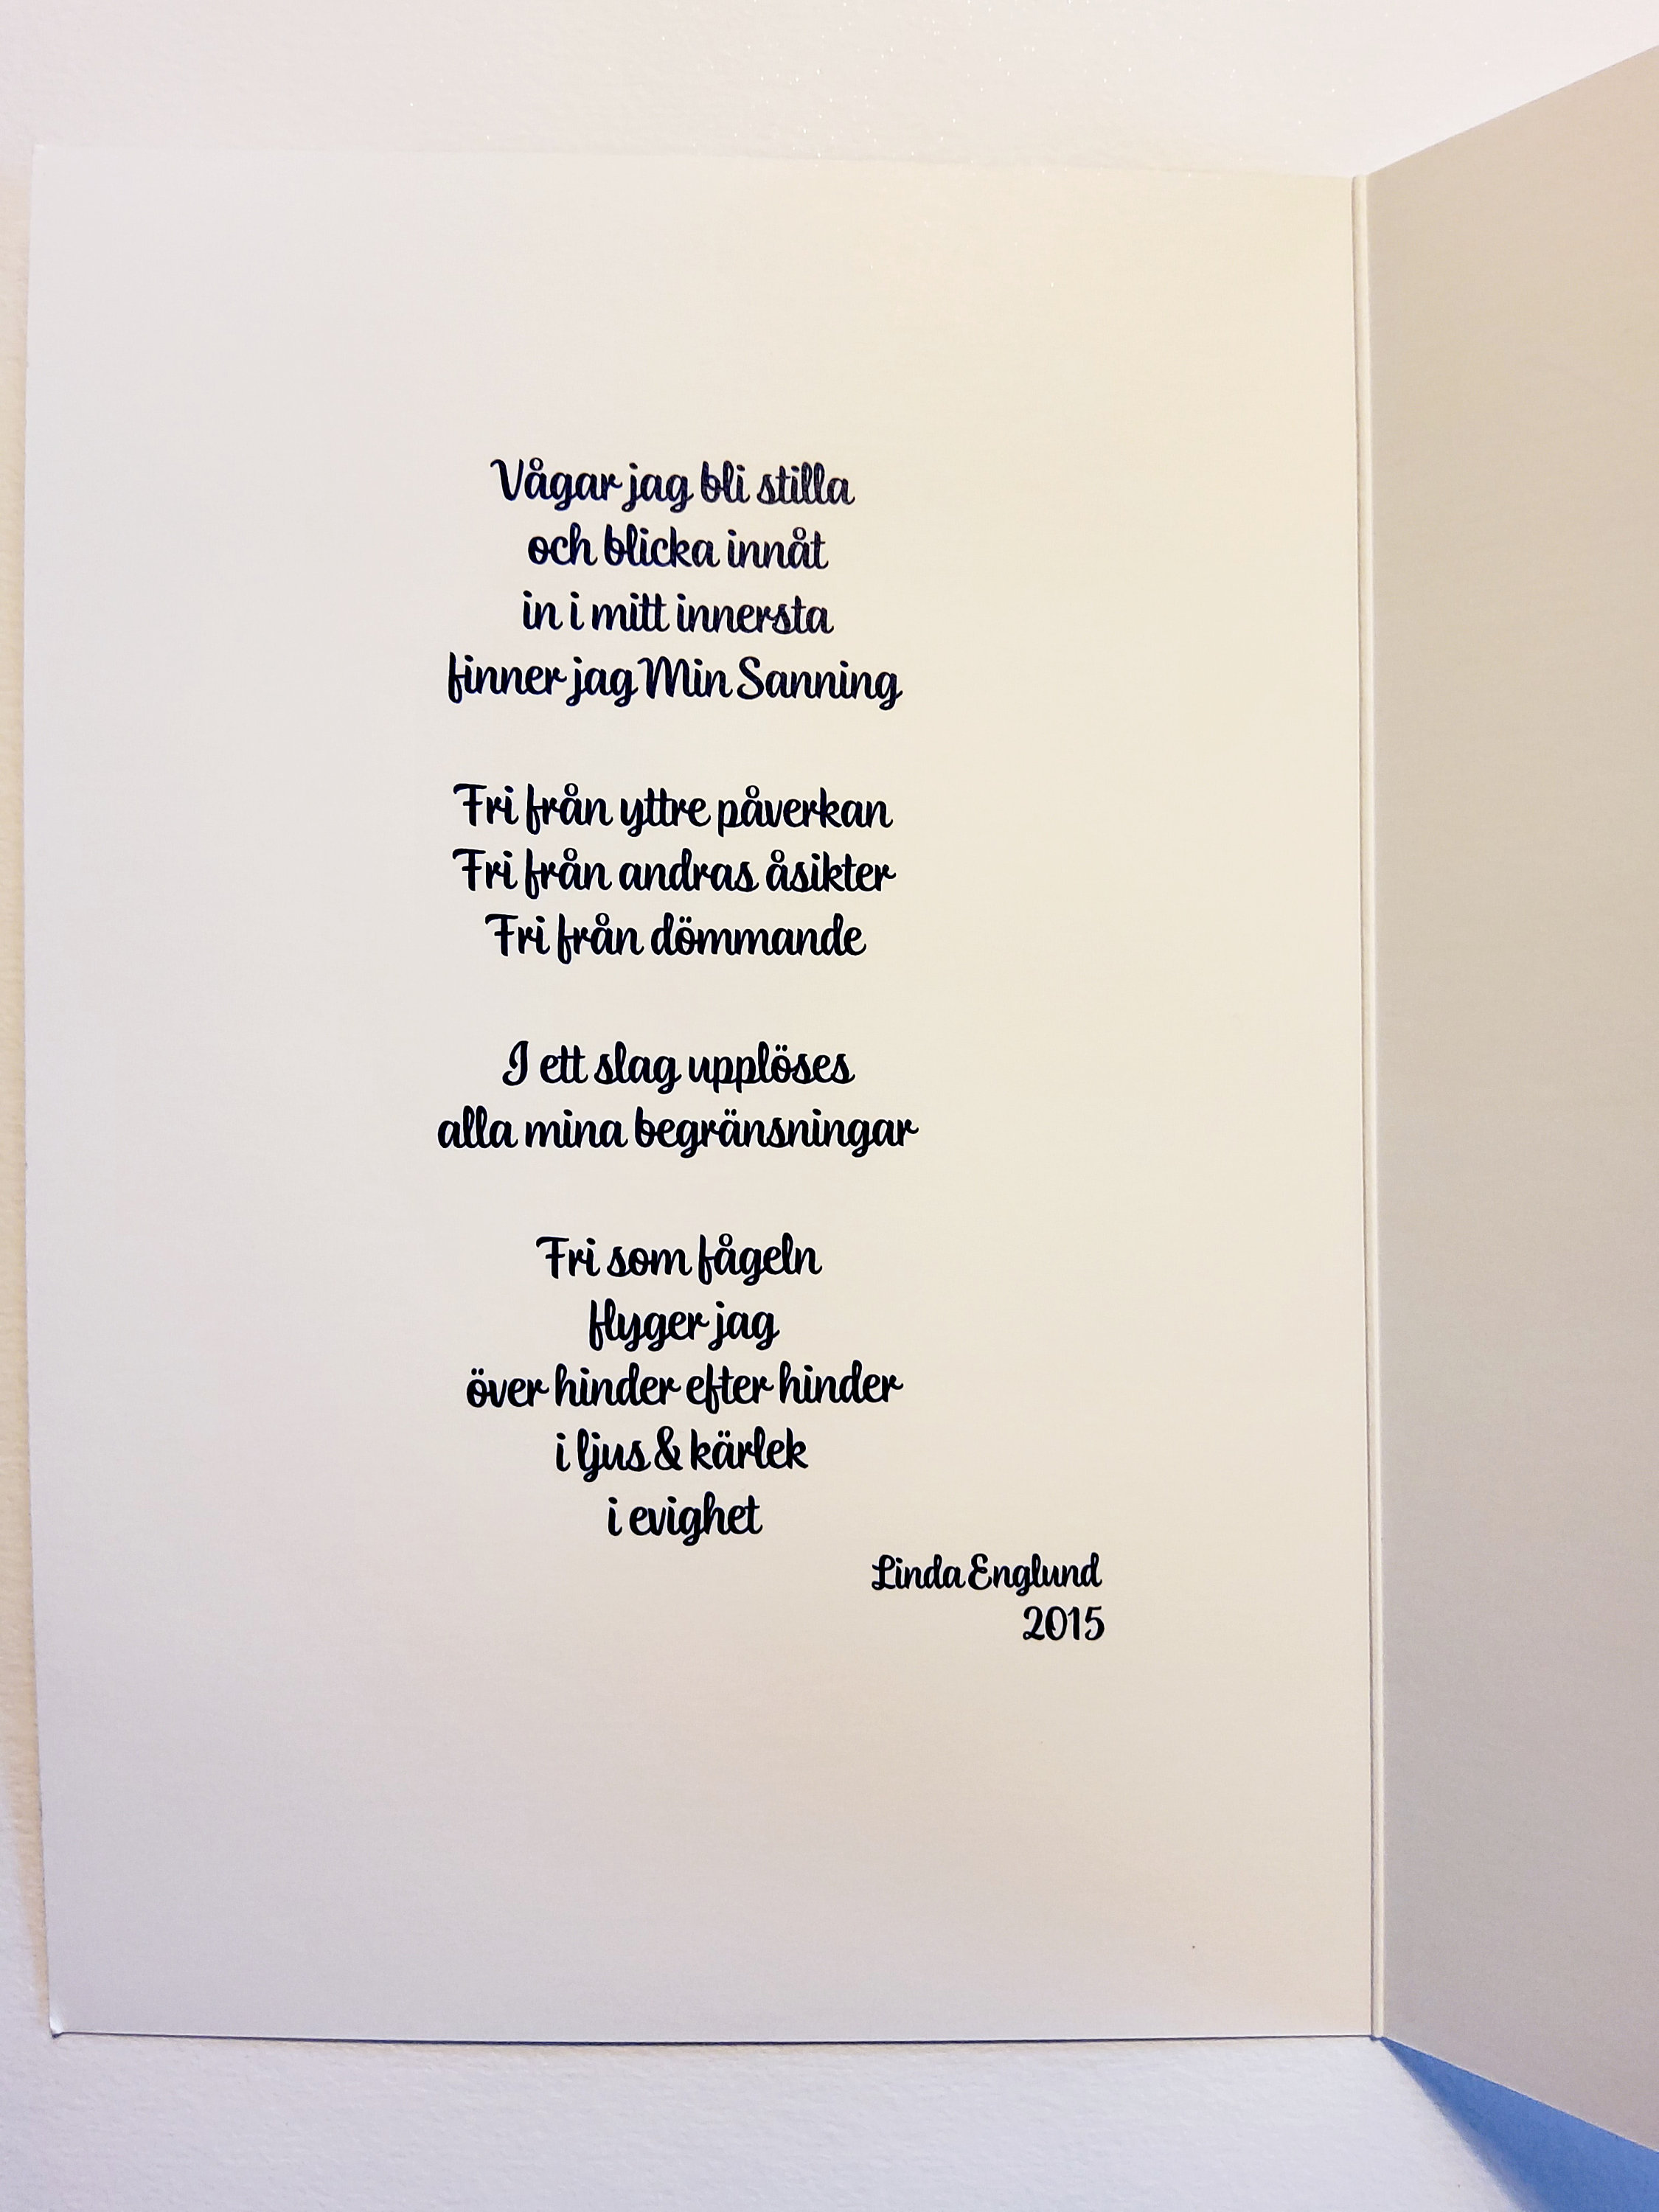 Vågar jag bli stilla
och blicka innåt
in i mitt innersta
finner jag Min Sanning
Fri från yttre påverkan
Fri från andras åsikter
Fri från dömmande
I ett slag upplöses
alla mina begränsningar
Fri som fågeln
flyger jag
över hinder efter hinder
i ljus & kärlek
i evighet
Linda Englund
2015